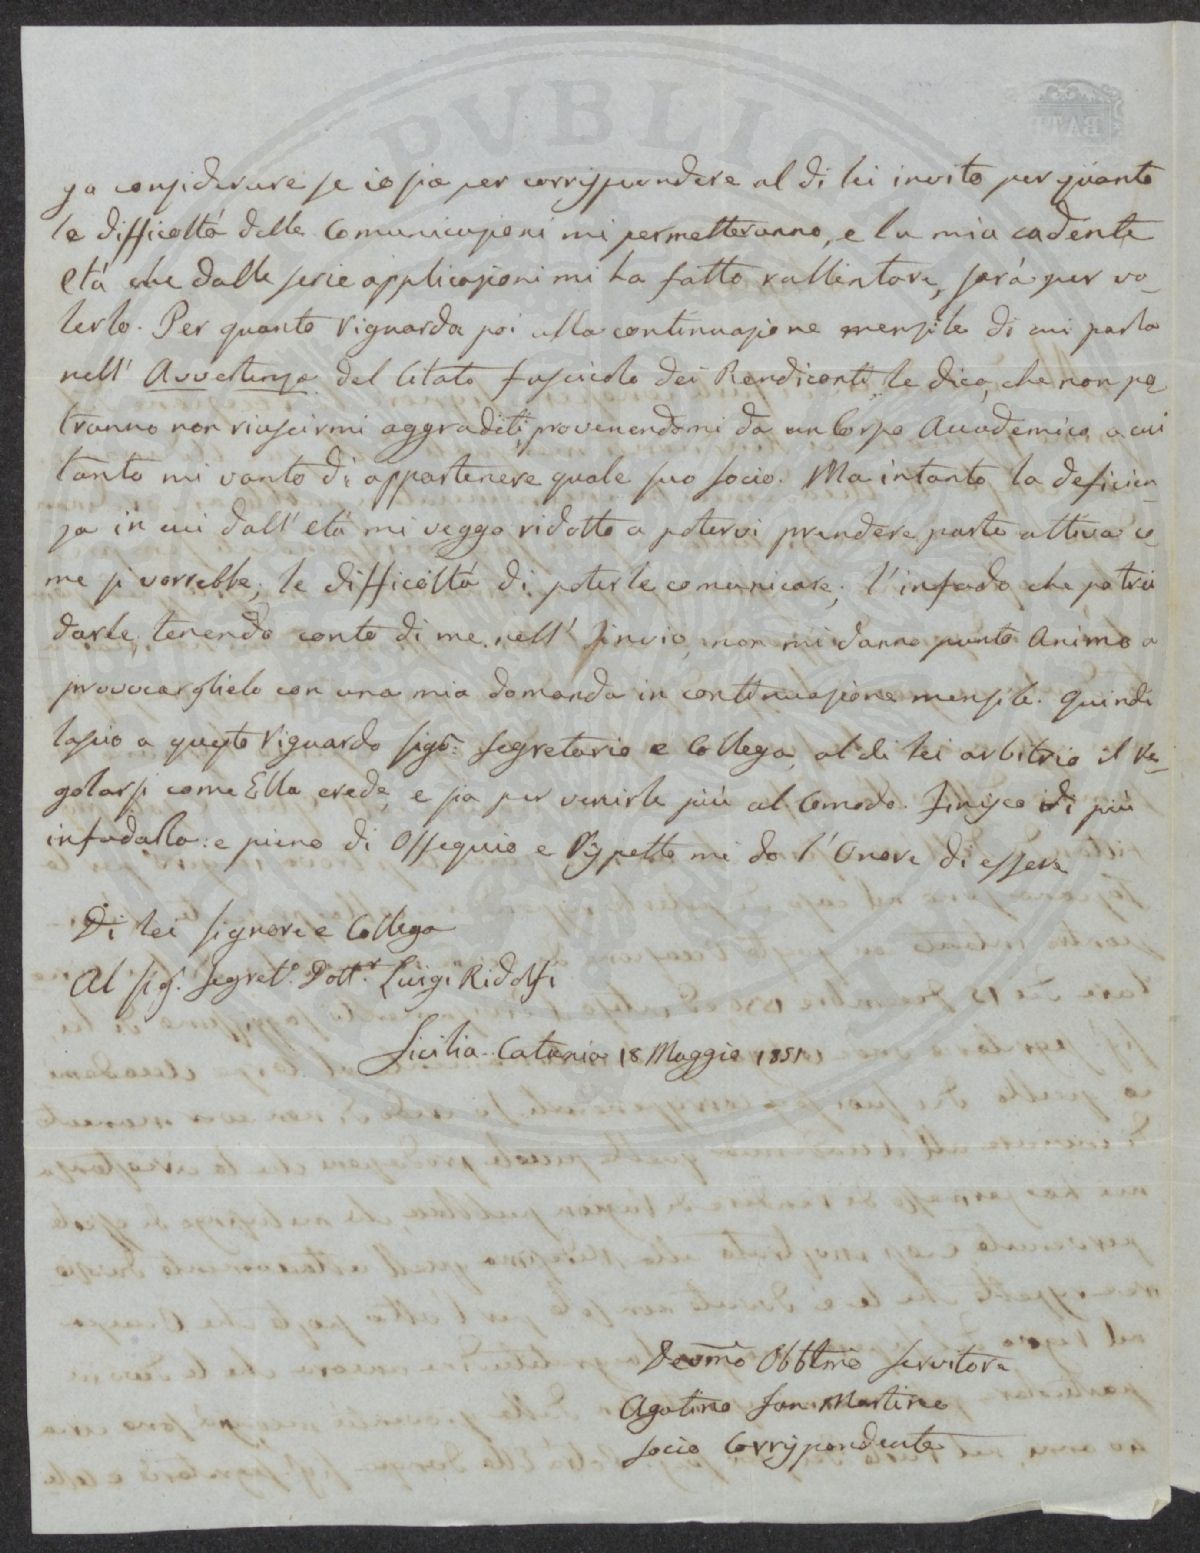 PVBLICA
BATH
ga considerare se io sia per corrispondere al di lei invito per quanto
le difficoltà delle Comunicazioni mi permetteranno, e la mia cadente
Età che dalle serie applicazioni mi ha fatto rallentare, sarà per vo-
lerlo. Per quanto riguarda poi alla continuazione mensile di cui parla
nell' Avvertenza del Citato fascicolo dei Rendiconti le dico, che non po-
tranno non riuscirmi aggraditi, provenendomi da un Corpo Accademico a cui
tanto mi vanto di appartenere quale suo socio. Ma intanto la deficien-
za in cui dall' età mi veggo ridotto a potervi prendere parte attiva co-
me si vorrebbe; le difficoltà di poterle comunicare; l'infado che potria
darle, tenendo conto di me nell' invio, non mi danno punto Animo a
provocarglielo con una mia domanda in continuazione mensile. Quindi
lascio a questo riguardo sigr. Segretario e Collega, al di lei arbitrio il re-
golarsi come Ella crede, e sia per venirle più al Comodo. Finisco di più
infadarla: e pieno di Ossequio e Rispetto mi do l'Onore di essere
Di lei Signore e Collega
Al sigr. Segreto. Dottr. Luigi Ridolfi
Sicilia - Catania 18 Maggio 1851
Devmo Obblmo servitore
Agatino San Martino
Socio Corrispondente